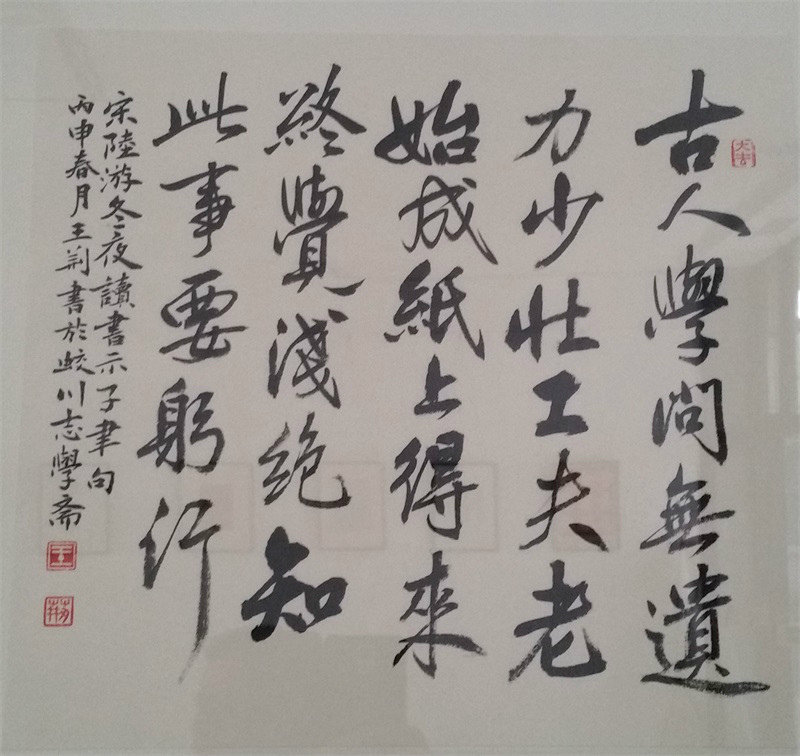 古人學問無遺
力少壯工夫老
始成紙上得來
終覺淺絕知
此事要躬行
宋陸游冬夜讀書示子聿句
丙申春月王荊書於蛟川志學斋